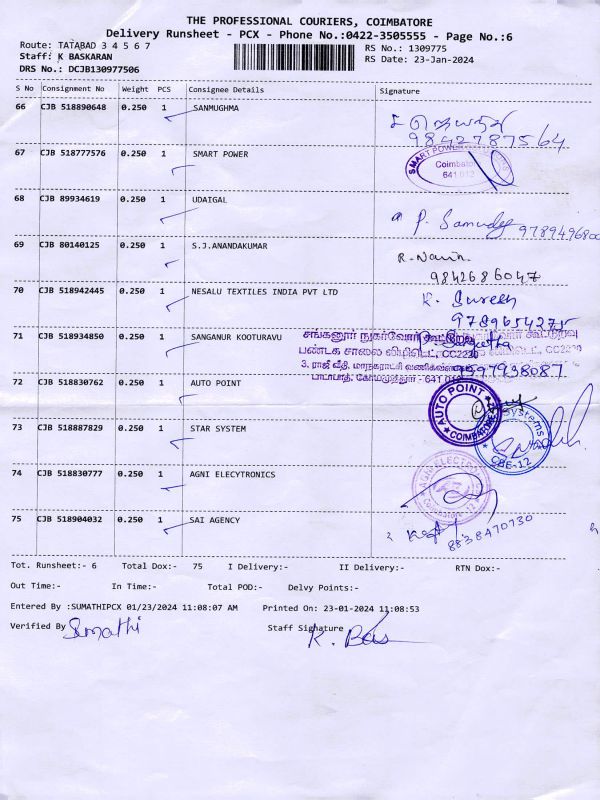 THE PROFESSIONAL COURIERS, COIMBATORE
Delivery Runsheet - PCX - Phone No.:0422-3505555 - Page No.:6
Route: TATABAD 3 4 5 6 7
RS No.: 1309775
Staff: K BASKARAN
RS Date: 23-Jan-2024
DRS No.: DCJB130977506
S No Consignment No Weight PCS Consignee Details Signature
66 CJB 518890648 0.250 1 SANMUGHMA
9842787564
67 CJB 518777576 0.250 1 SMART POWER
SMART POWER
Coimbatore
641 012
68 CJB 89934619 0.250 1 UDAIGAL
P. 9789496800
69 CJB 80140125 0.250 1 S.J.ANANDAKUMAR
R. Navin
9842686047
70 CJB 518942445 0.250 1 NESALU TEXTILES INDIA PVT LTD
K. Suresh
9789654275
71 CJB 518934850 0.250 1 SANGANUR KOOTURAVU
சங்கனூர் நுகர்வோர் கூட்டுறவு
பண்டக சாலை லிமிடெட், CC2220
3, ராஜீ வீதி, மாநகராட்சி வணிகவளாகம்
டாடாபாத், கோயமுத்தூர் - 641 012
72 CJB 518830762 0.250 1 AUTO POINT
AUTO POINT
COIMBATORE
73 CJB 518887829 0.250 1 STAR SYSTEM
Systems
CBE-12
74 CJB 518830777 0.250 1 AGNI ELECYTRONICS
Coimbatore - 12
75 CJB 518904032 0.250 1 SAI AGENCY
8838470730
Tot. Runsheet:- 6 Total Dox:- 75 I Delivery:- II Delivery:- RTN Dox:-
Out Time:- In Time:- Total POD:- Delvy Points:-
Entered By :SUMATHIPCX 01/23/2024 11:08:07 AM Printed On: 23-01-2024 11:08:53
Verified By Sumathi Staff Signature K. Bas